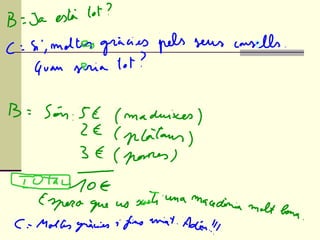 B = Ja està tot?
C = Sí, moltes gràcies pels seus consells.
Quan seria tot?
B = Són: 5 € (maduixes)
2 € (plàtans)
3 € (pomes)
TOTAL 10 €
Espero que us surti una macedònia molt bona.
C = Moltes gràcies i fins aviat. Adéu!!!